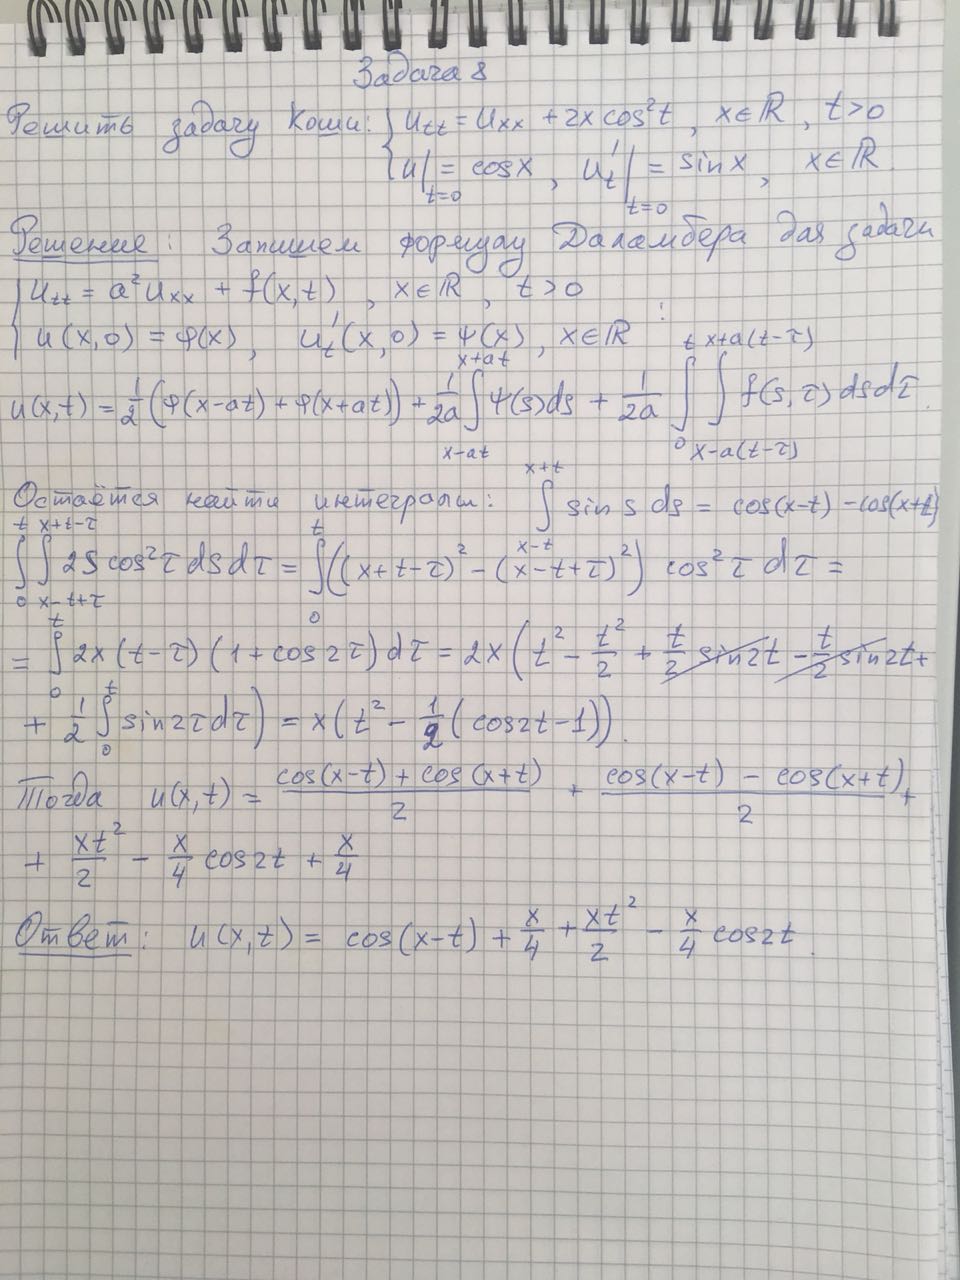 Задача 8
Решить задачу Коши: { u_tt = u_xx + 2x cos²t, x∈ℝ, t>0
u|_{t=0} = cos x, u_t'|_{t=0} = sin x, x∈ℝ.
Решение: Запишем формулу Даламбера для задачи
{ u_tt = a² u_xx + f(x,t), x∈ℝ, t>0
u(x,0) = φ(x), u_t'(x,0) = ψ(x), x∈ℝ :
u(x,t) = 1/2 (φ(x-at) + φ(x+at)) + 1/(2a) ∫_{x-at}^{x+at} ψ(s)ds + 1/(2a) ∫_0^t ∫_{x-a(t-τ)}^{x+a(t-τ)} f(s,τ) ds dτ.
Остаётся найти интегралы: ∫_{x-t}^{x+t} sin s ds = cos(x-t) - cos(x+t)
∫_0^t ∫_{x-t+τ}^{x+t-τ} 2s cos²τ ds dτ = ∫_0^t ((x+t-τ)² - (x-t+τ)²) cos²τ dτ =
= ∫_0^t 2x (t-τ) (1+cos2τ) dτ = 2x (t² - t²/2 + t/2 sin2t - t/2 sin2t +
+ 1/2 ∫_0^t sin2τ dτ) = x(t² - 1/2 (cos2t - 1)).
Тогда u(x,t) = (cos(x-t) + cos(x+t))/2 + (cos(x-t) - cos(x+t))/2 +
+ xt²/2 - x/4 cos2t + x/4
Ответ: u(x,t) = cos(x-t) + x/4 + xt²/2 - x/4 cos2t.